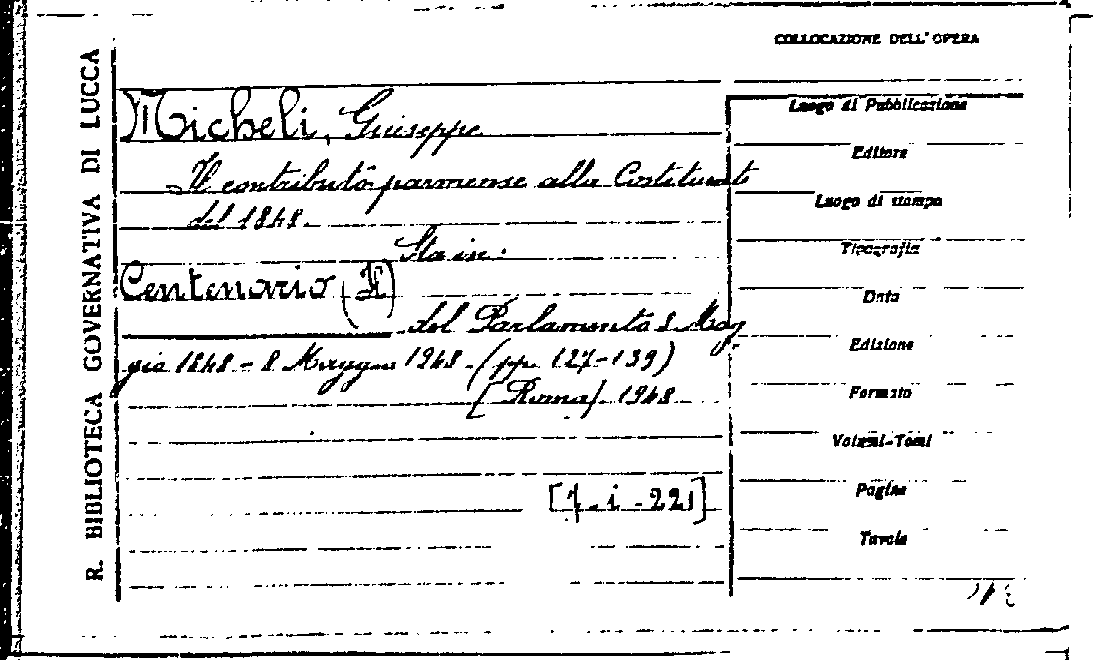 R. BIBLIOTECA GOVERNATIVA DI LUCCA
Micheli, Giuseppe
Il contributo parmense alla Costituente
del 1848.
Sta in:
Centenario (Il)
del Parlamento 8 Mag
gio 1848 - 8 Maggio 1948. (pp. 127-139)
[Roma]. 1948.
[7-i-221]
COLLOCAZIONE DELL'OPERA
Luogo di Pubblicazione
Editore
Luogo di stampa
Tipografia
Data
Edizione
Formato
Volumi-Tomi
Pagine
Tavole